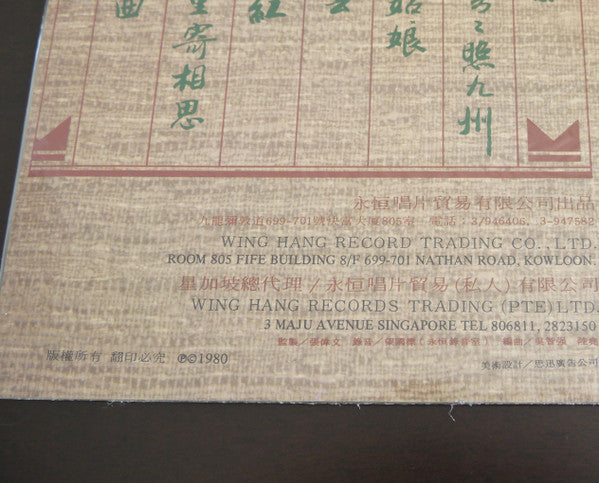 州九照々
姑娘
紅
里寄相思
曲
永恒唱片貿易有限公司出品
九龍彌敦道699-701號快富大厦805室 電話：3/946406, 3-947582
WING HANG RECORD TRADING CO., LTD.
ROOM 805 FIFE BUILDING 8/F 699-701 NATHAN ROAD, KOWLOON.
星加坡總代理／永恒唱片貿易(私人)有限公司
WING HANG RECORDS TRADING (PTE) LTD.
3 MAJU AVENUE SINGAPORE TEL 806811, 2823150
監製／張偉文 錄音／ (永恒錄音室) 編曲／
版權所有 翻印必究 ℗©1980
美術設計／思迅廣告公司